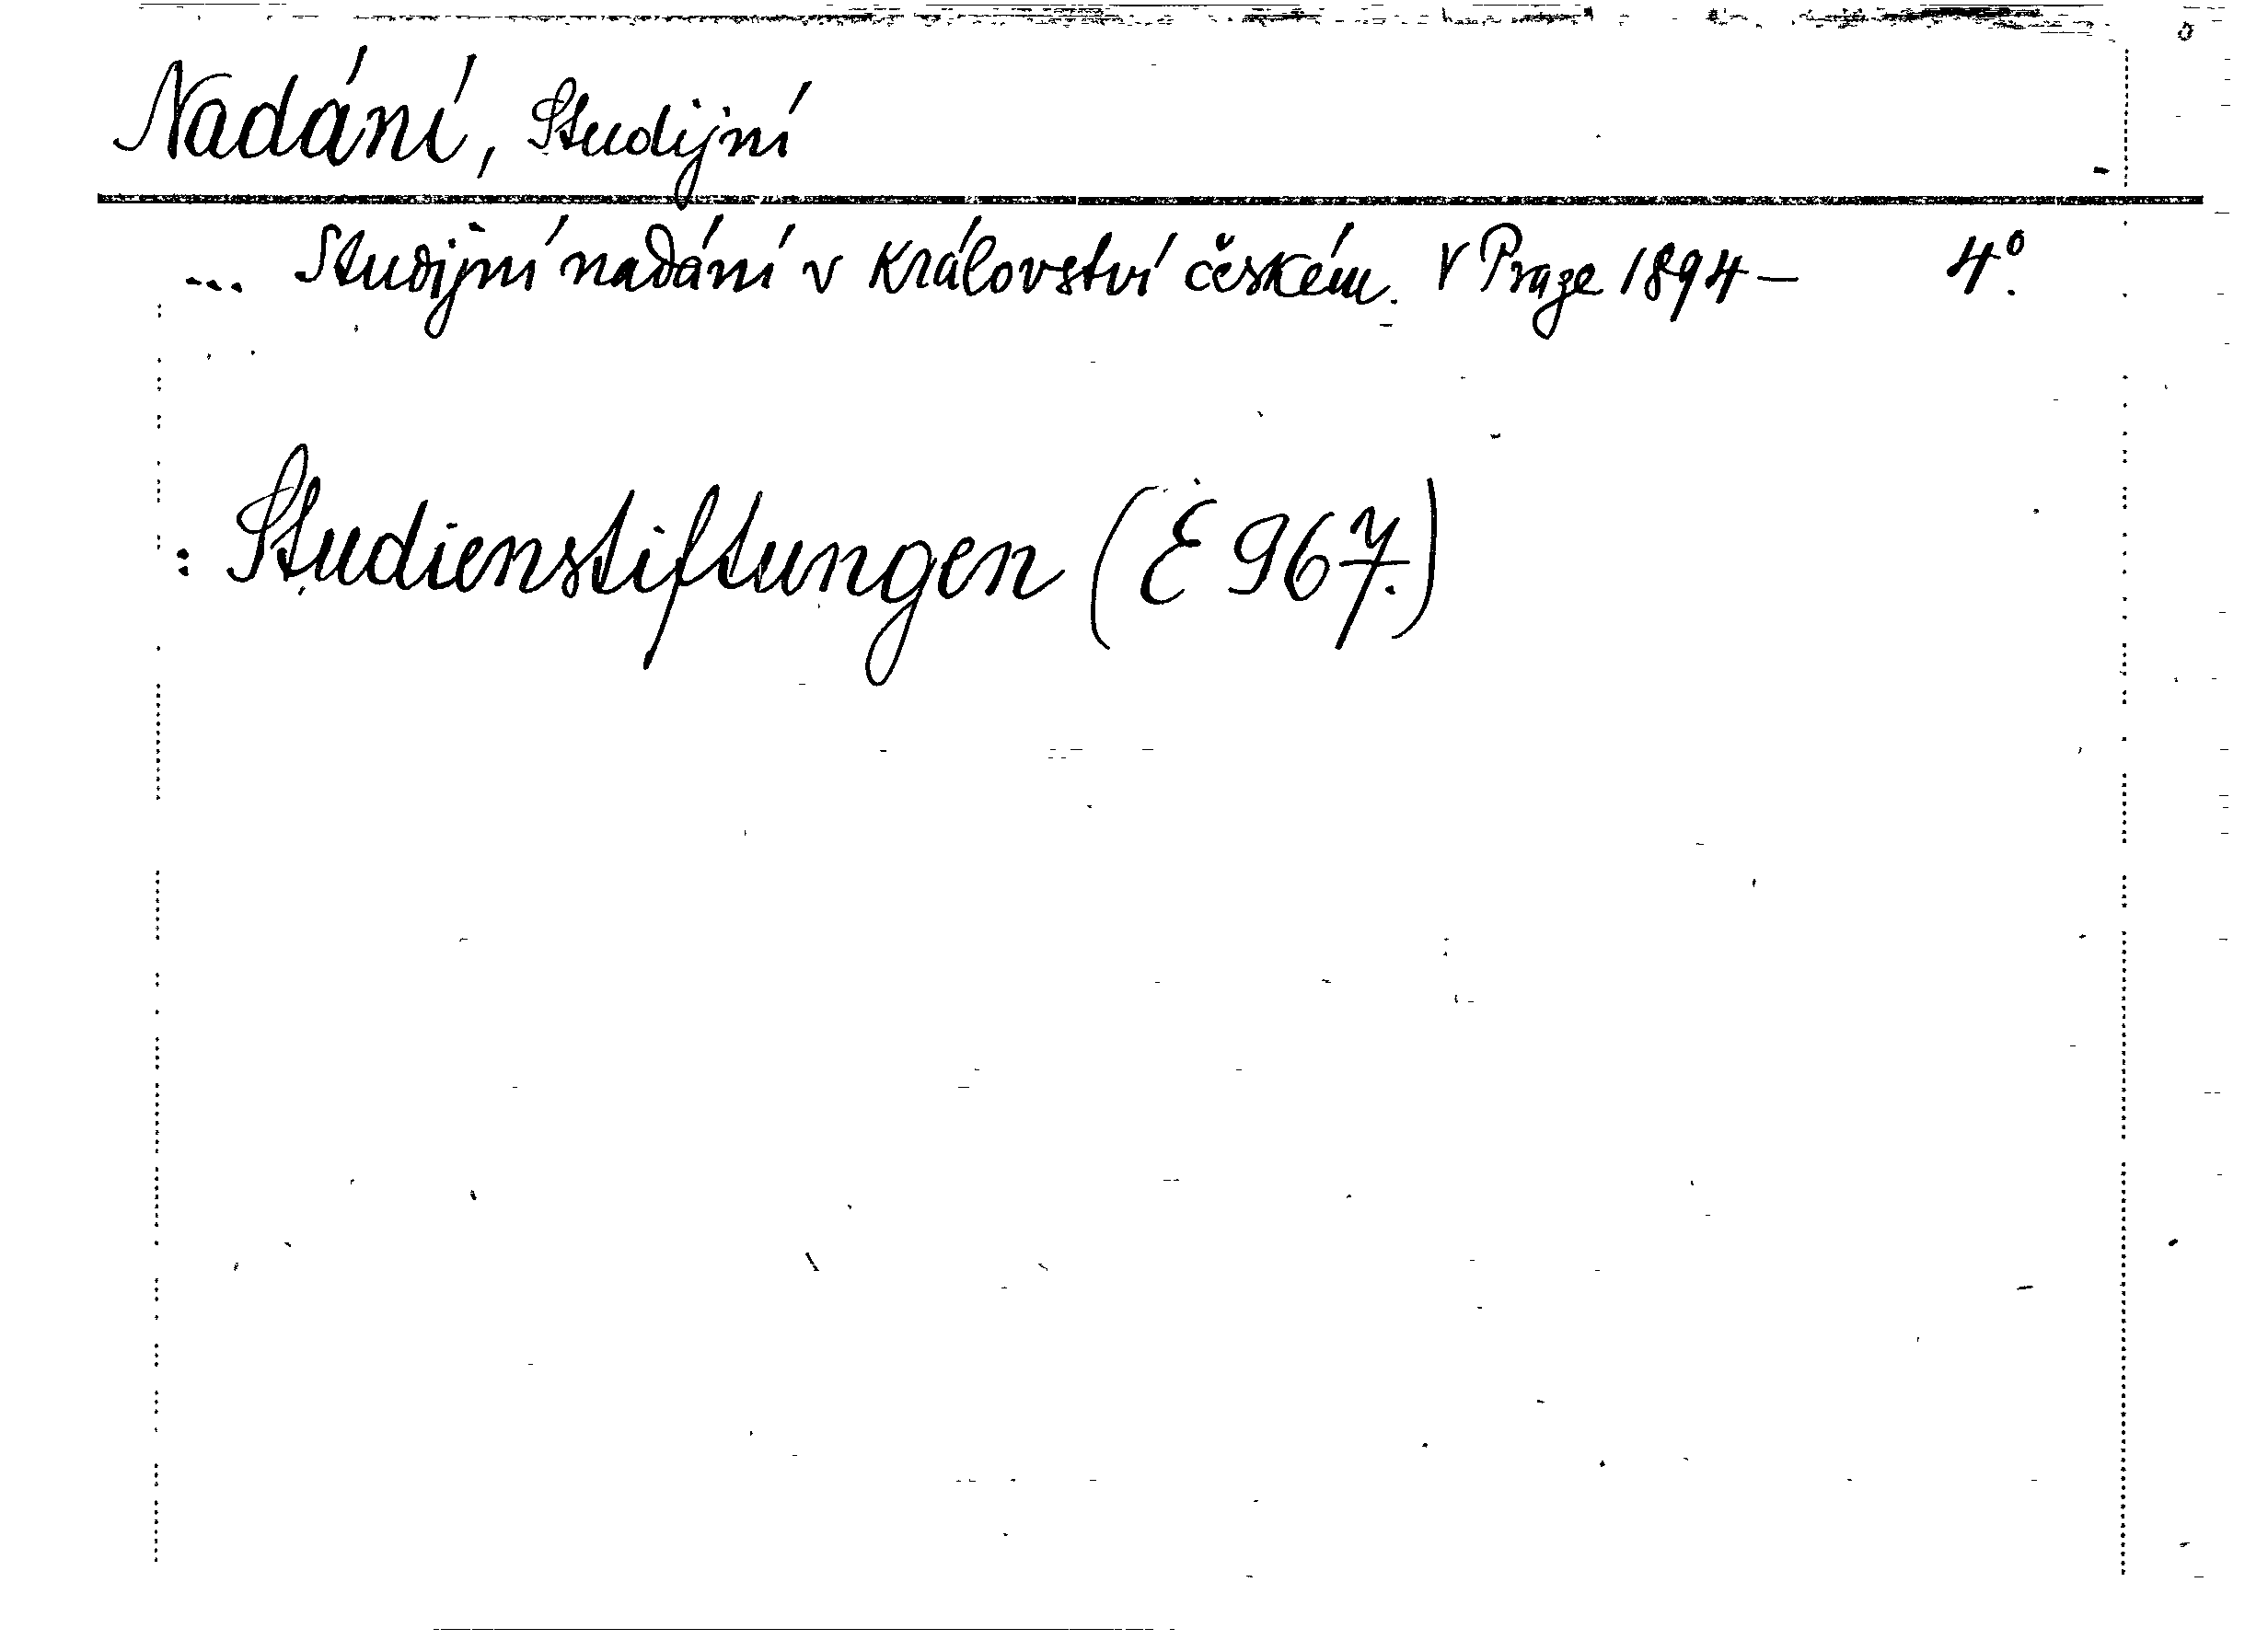 Nadání, Studijní
... Studijní nadání v království českém. V Praze 1894 – 4°.
: Studienstiftungen (E 967.)